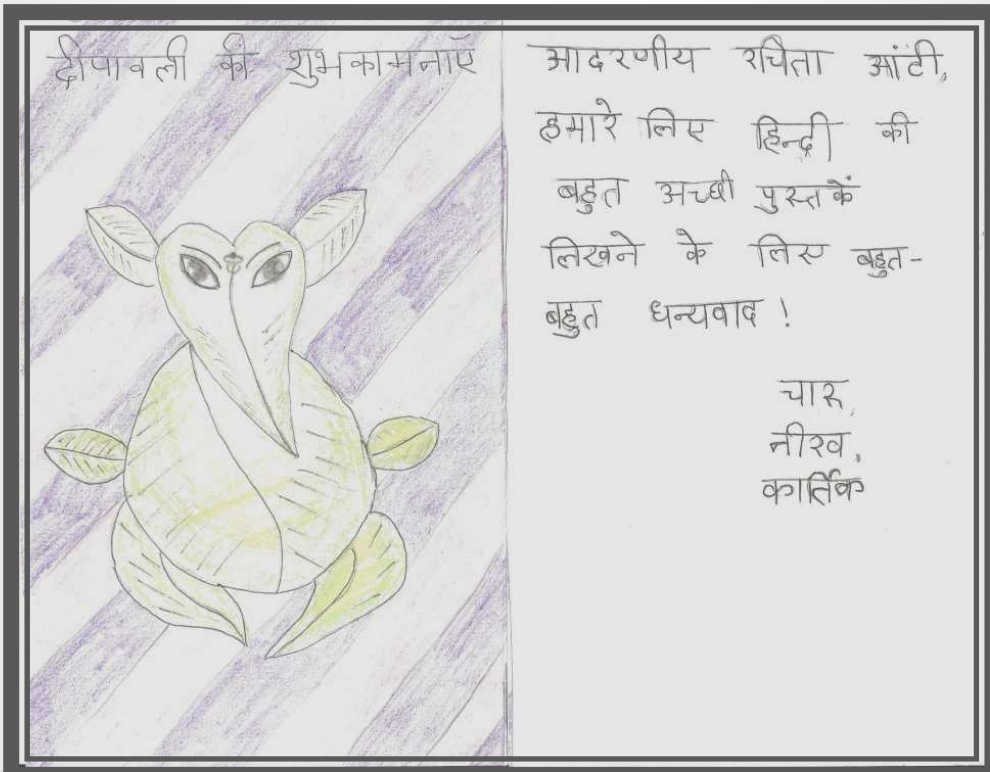 दीपावली की शुभकामनाएँ
आदरणीय रचिता आंटी,
हमारे लिए हिन्दी की
बहुत अच्छी पुस्तकें
लिखने के लिए बहुत-
बहुत धन्यवाद !
चारू,
नीरव,
कार्तिक